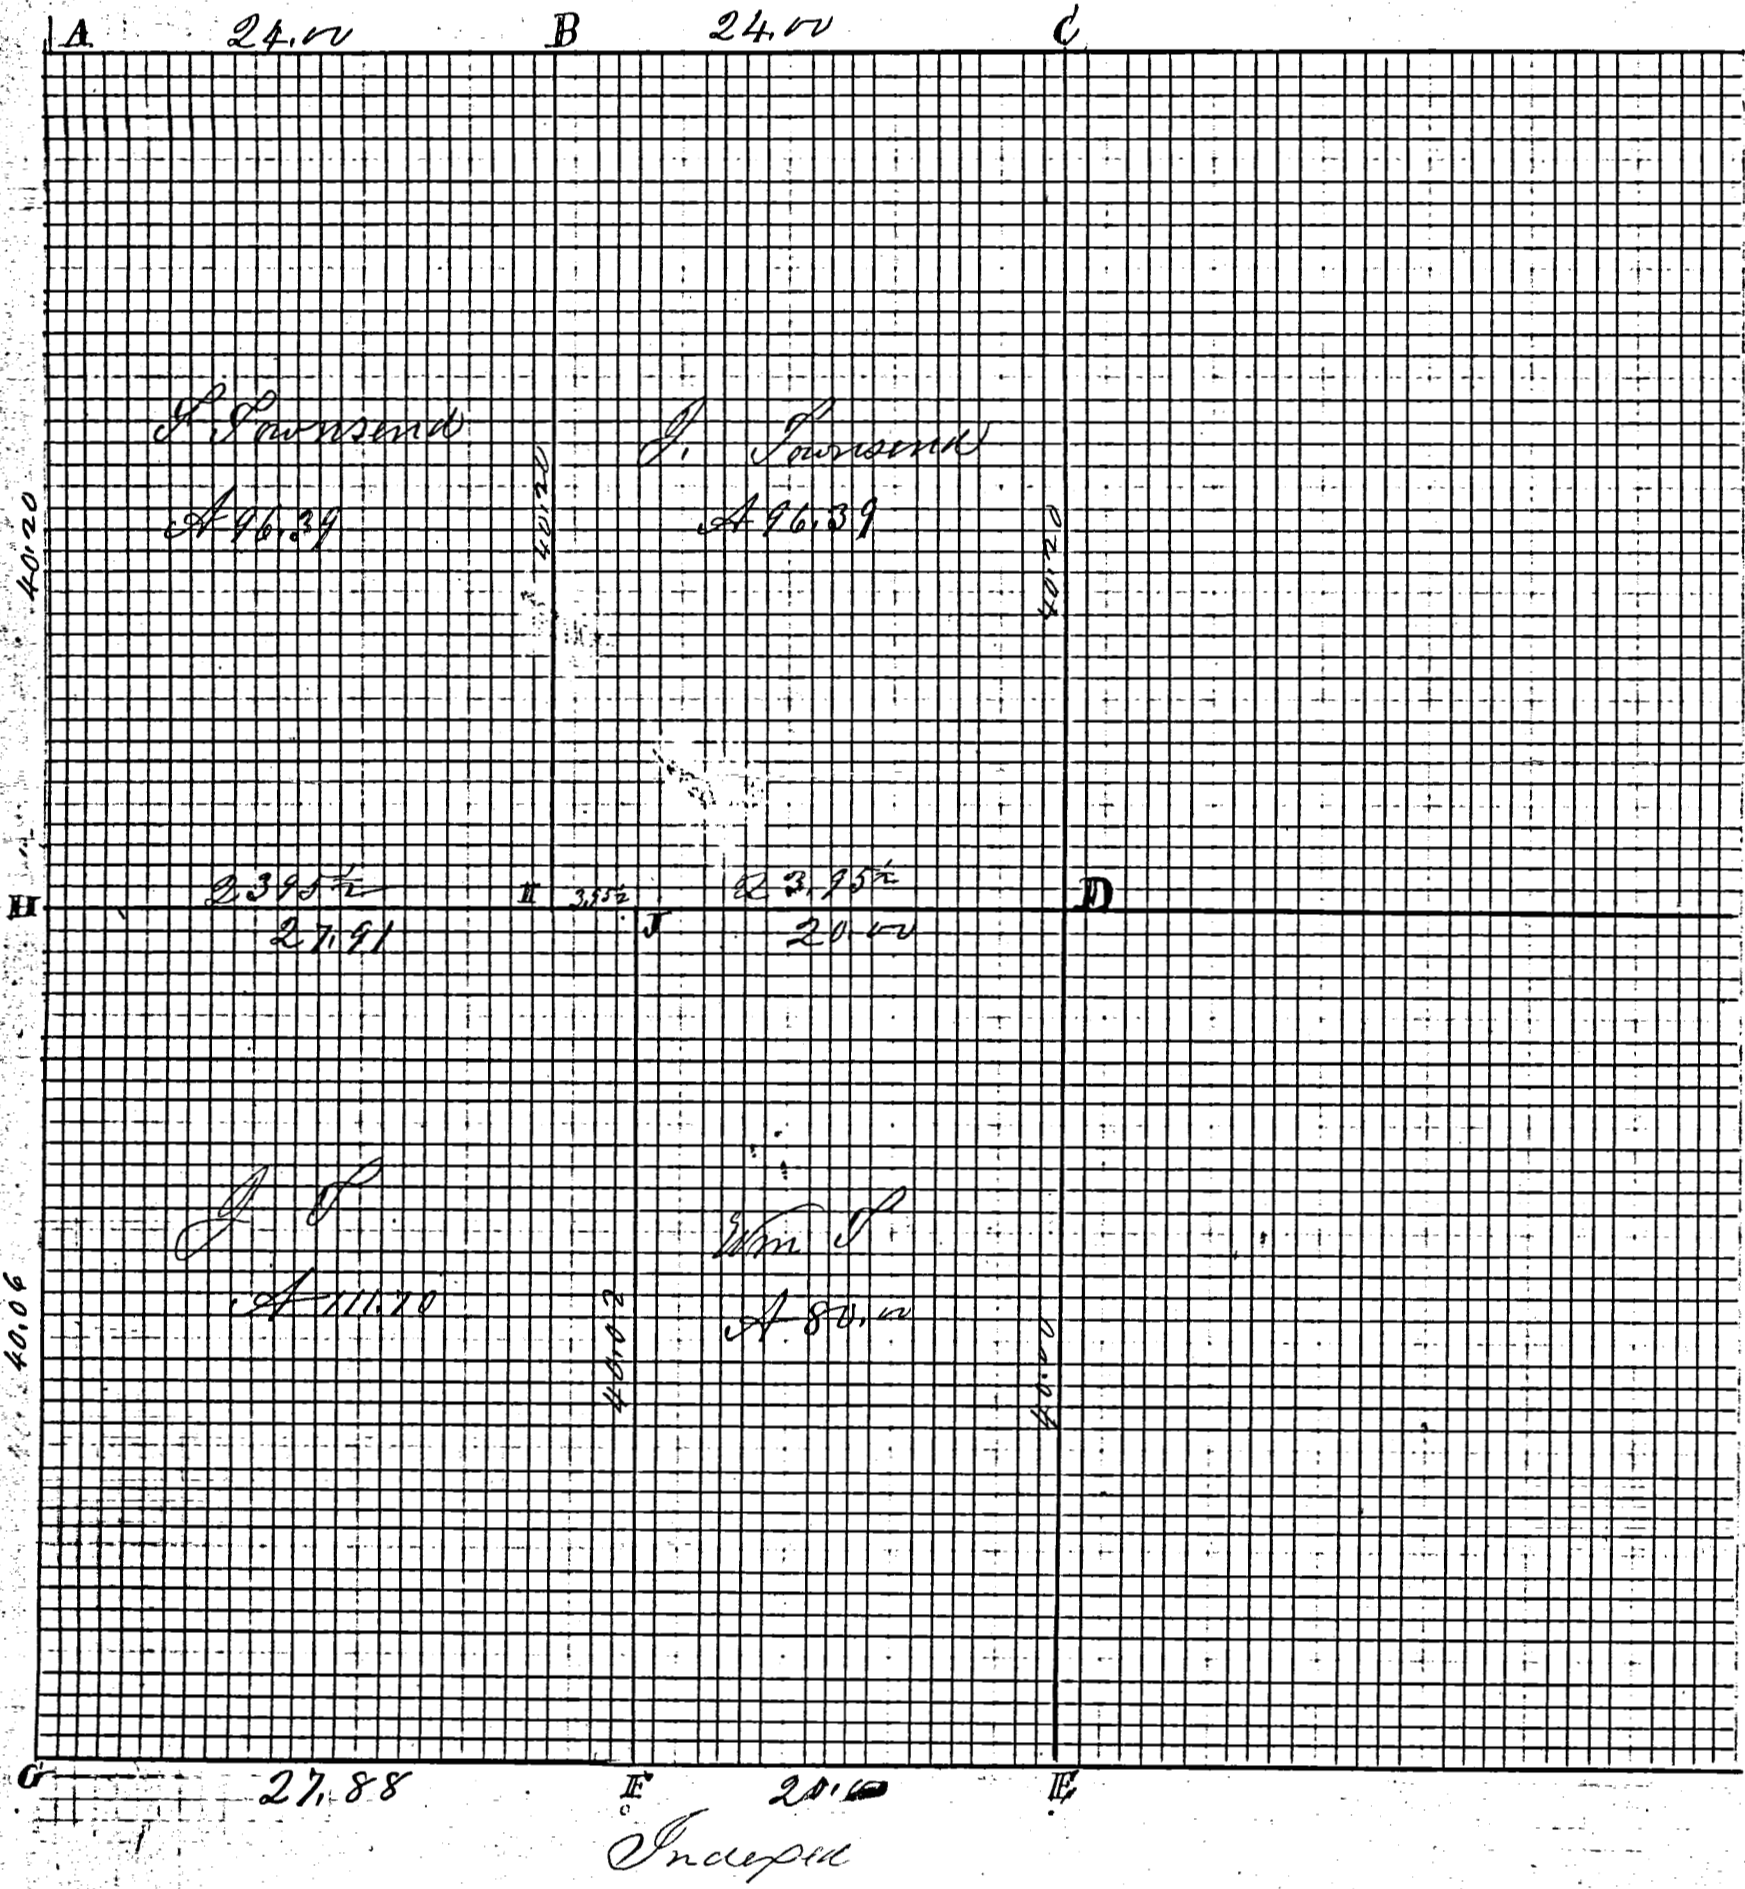 A 24.00 B 24.00 C
S. Townsend J. Townsend
A 96.39 A 96.39
40.20 40.20 40.20
23 95½ I 3,95½ 23.95½
H J D
27.91 20.00
J T Wm T
A 111.70 A 80.00
40.06 40.02 40.00
G 27.88 F 20.00 E
Indexed